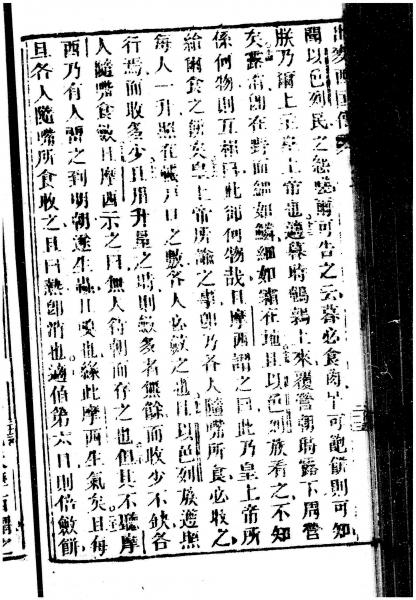 出麥西國傳
聞以色列民之怨嗟爾可告之云暮必食肉早可飽餅則可知
朕乃爾上主皇上帝也適暮時鵪鶉上來覆營朝時露下周營
矣露消卽在野面細如鱗細如霜在地且以色列族看之不知
係何物則互相曰此卽何物哉且摩西謂之曰此乃皇上帝所
給爾食之餅矣皇上帝所諭之事卽乃各人隨嘴所食必收之
每人一升照在帳戶口之數各人必斂之也且以色列族遵照
行焉而收多少且用升量之時則斂多者無餘而收少不缺各
人隨嘴食斂且摩西示之曰無人待朝而存之也但其不聽摩
西乃有人留之到明朝遂生蟲且臭也緣此摩西生氣矣且每
旦各人隨嘴所食收之且日熱卽消也適值第六日則倍斂餅